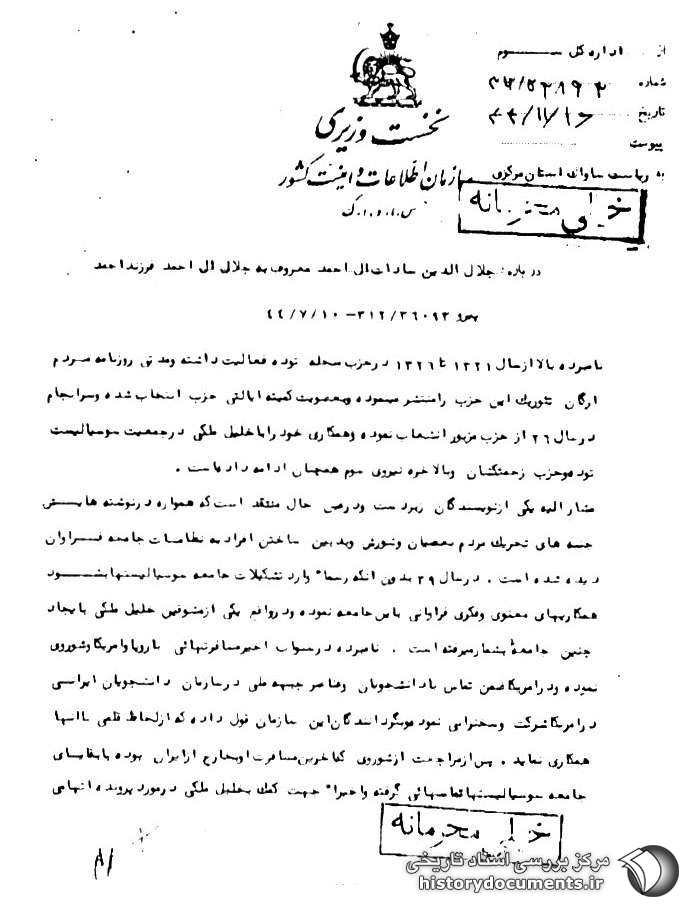 از اداره کل سوم
شماره
تاریخ ۴۴/۱۱/۱۶
پیوست
نخست وزیری
سازمان اطلاعات و امنیت کشور
س.ا.و.ا.ک
به ریاست ساواک استان مرکزی
خیلی محرمانه
درباره: جلال الدین سادات ال احمد معروف به جلال ال احمد فرزند احمد
پیرو ۳۱۲/۳۶۰۹۳-۴۴/۷/۱۰
نامبرده بالا از سال ۱۳۲۱ تا ۱۳۲۶ در حزب منحله توده فعالیت داشته ومدتی روزنامه مردم
ارگان تئوریک این حزب را منتشر مینموده وبعضویت کمیته ایالتی حزب انتخاب شده وسرانجام
در سال ۲۶ از حزب مزبور انشعاب نموده وهمکاری خود را با خلیل ملکی در جمعیت سوسیالیست
توده وحزب زحمتکشان وبالاخره نیروی سوم همچنان ادامه داده است .
مشار الیه یکی از نویسندگان زبردست ودر عین حال منتقد است که همواره در نوشته هایش
جنبه های تحریک مردم بعصیان وشورش وبدبین ساختن افراد به نظامات جامعه فراوان
دیده شده است . در سال ۳۹ بدون آنکه رسما" وارد تشکیلات جامعه سوسیالیستها بشود
همکاریهای معنوی وفکری فراوانی با این جامعه نموده ودر واقع یکی از مشوقین خلیل ملکی بایجاد
چنین جامعهٔ بشمار میرفته است . نامبرده در سنوات اخیر مسافرتهائی باروپا وامریکا وشوروی
نموده ودر امریکا ضمن تماس با دانشجویان وعناصر جبهه ملی در سازمان دانشجویان ایرانسی
در امریکا شرکت وسخنرانی نموده وبگردانندگان این سازمان قول داده که از لحاظ قلمی با آنها
همکاری نماید . پس از مراجعت از شوروی که آخرین مسافرت او بخارج از ایران بوده با بقایای
جامعه سوسیالیستها تماسهائی گرفته واخیرا" جهت کمک بخلیل ملکی در مورد پرونده اتهامی
خیلی محرمانه
۸۱
مرکز بررسی اسناد تاریخی
historydocuments.ir